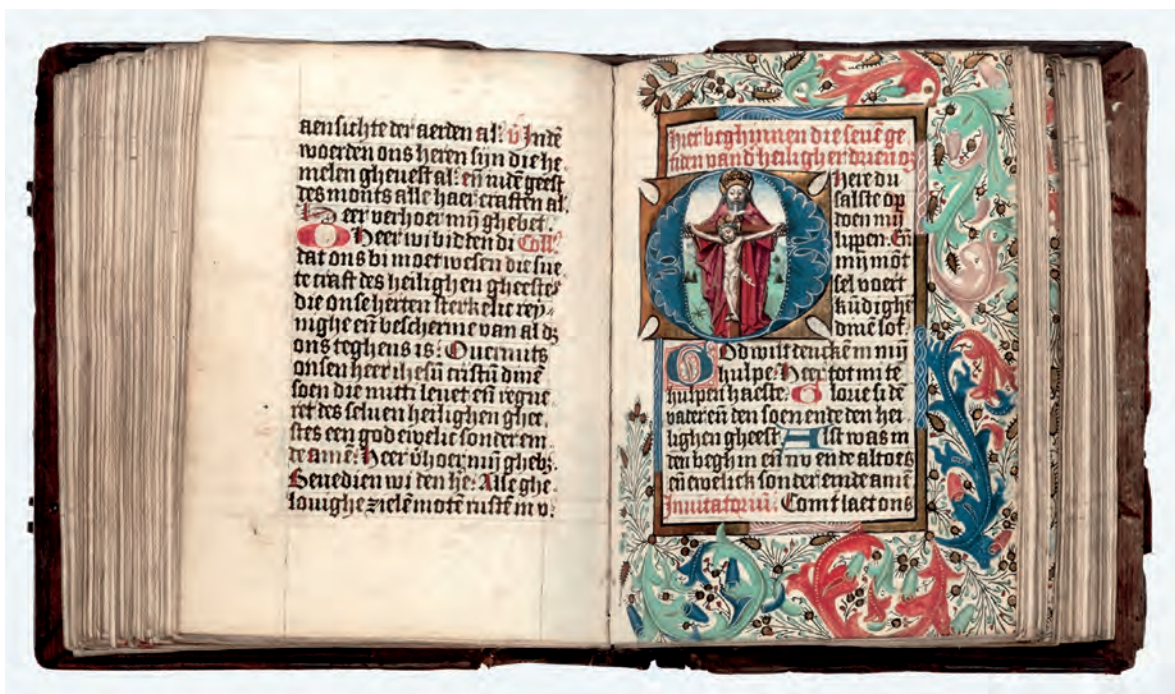 aensichte der aerden al: v̄ Indē
woerden ons heren sijn die he
melen gheuest al: eñ indē geest
des monts alle haer craften al.
Heer verhoer mijn ghebet.
O Heer wi bidden di Coll'
dat ons bi moet wesen die sue
te craft des heilighen gheestes
die onse herten sterkelic rey-
nighe eñ bescherme van al dz
ons teghens is: Ouermits
onsen heer ihesū cristū dinē
soen die mitti leuet eñ regne
ret des seluen heilighen ghee
stes een god ewelic sonder ein
de amē: Heer v̄hoer mijn ghebz.
Benedien wi den he: Alle ghe
louighe zielē motē rustē in v:
hier beghinnen die seuē ge
tiden vand' heiligher drieuoz
Here du
salste op
doen mij
lippen. Eñ
mijn mōt
sel voert
kūdighe
dinē lof.
God wilt dencken in mijn
hulpe. Heer tot mi te
hulpen haeste. Glorie si dē
vater eñ den soen ende den hei
lighen gheest. Alst was in
den beghin eñ nv ende altoes
eñ ewelick sonder einde amē
Inuitatoriū. Comt laet ons